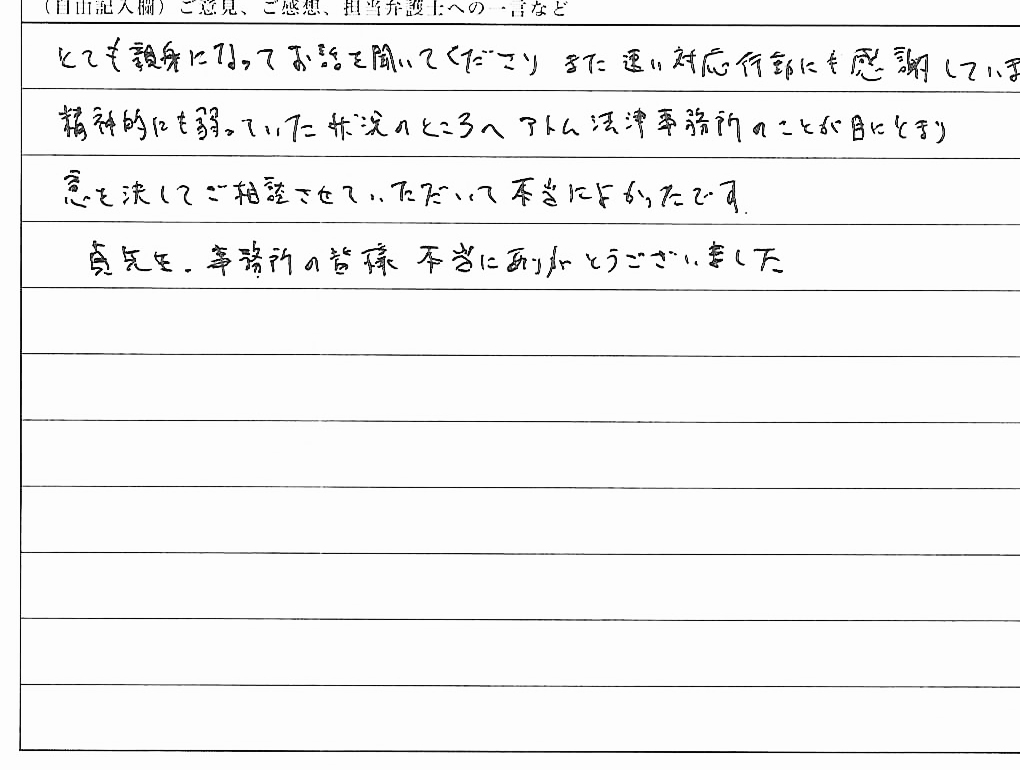 (自由記入欄)ご意見、ご感想、担当弁護士への一言など
とても親身になってお話を聞いてくださり また 速い対応行動にも感謝していま
精神的にも弱っていた状況のところへ アトム法律事務所のことが目にとまり
意を決してご相談させていただいて 本当によかったです。
貞先生、事務所の皆様 本当にありがとうございました